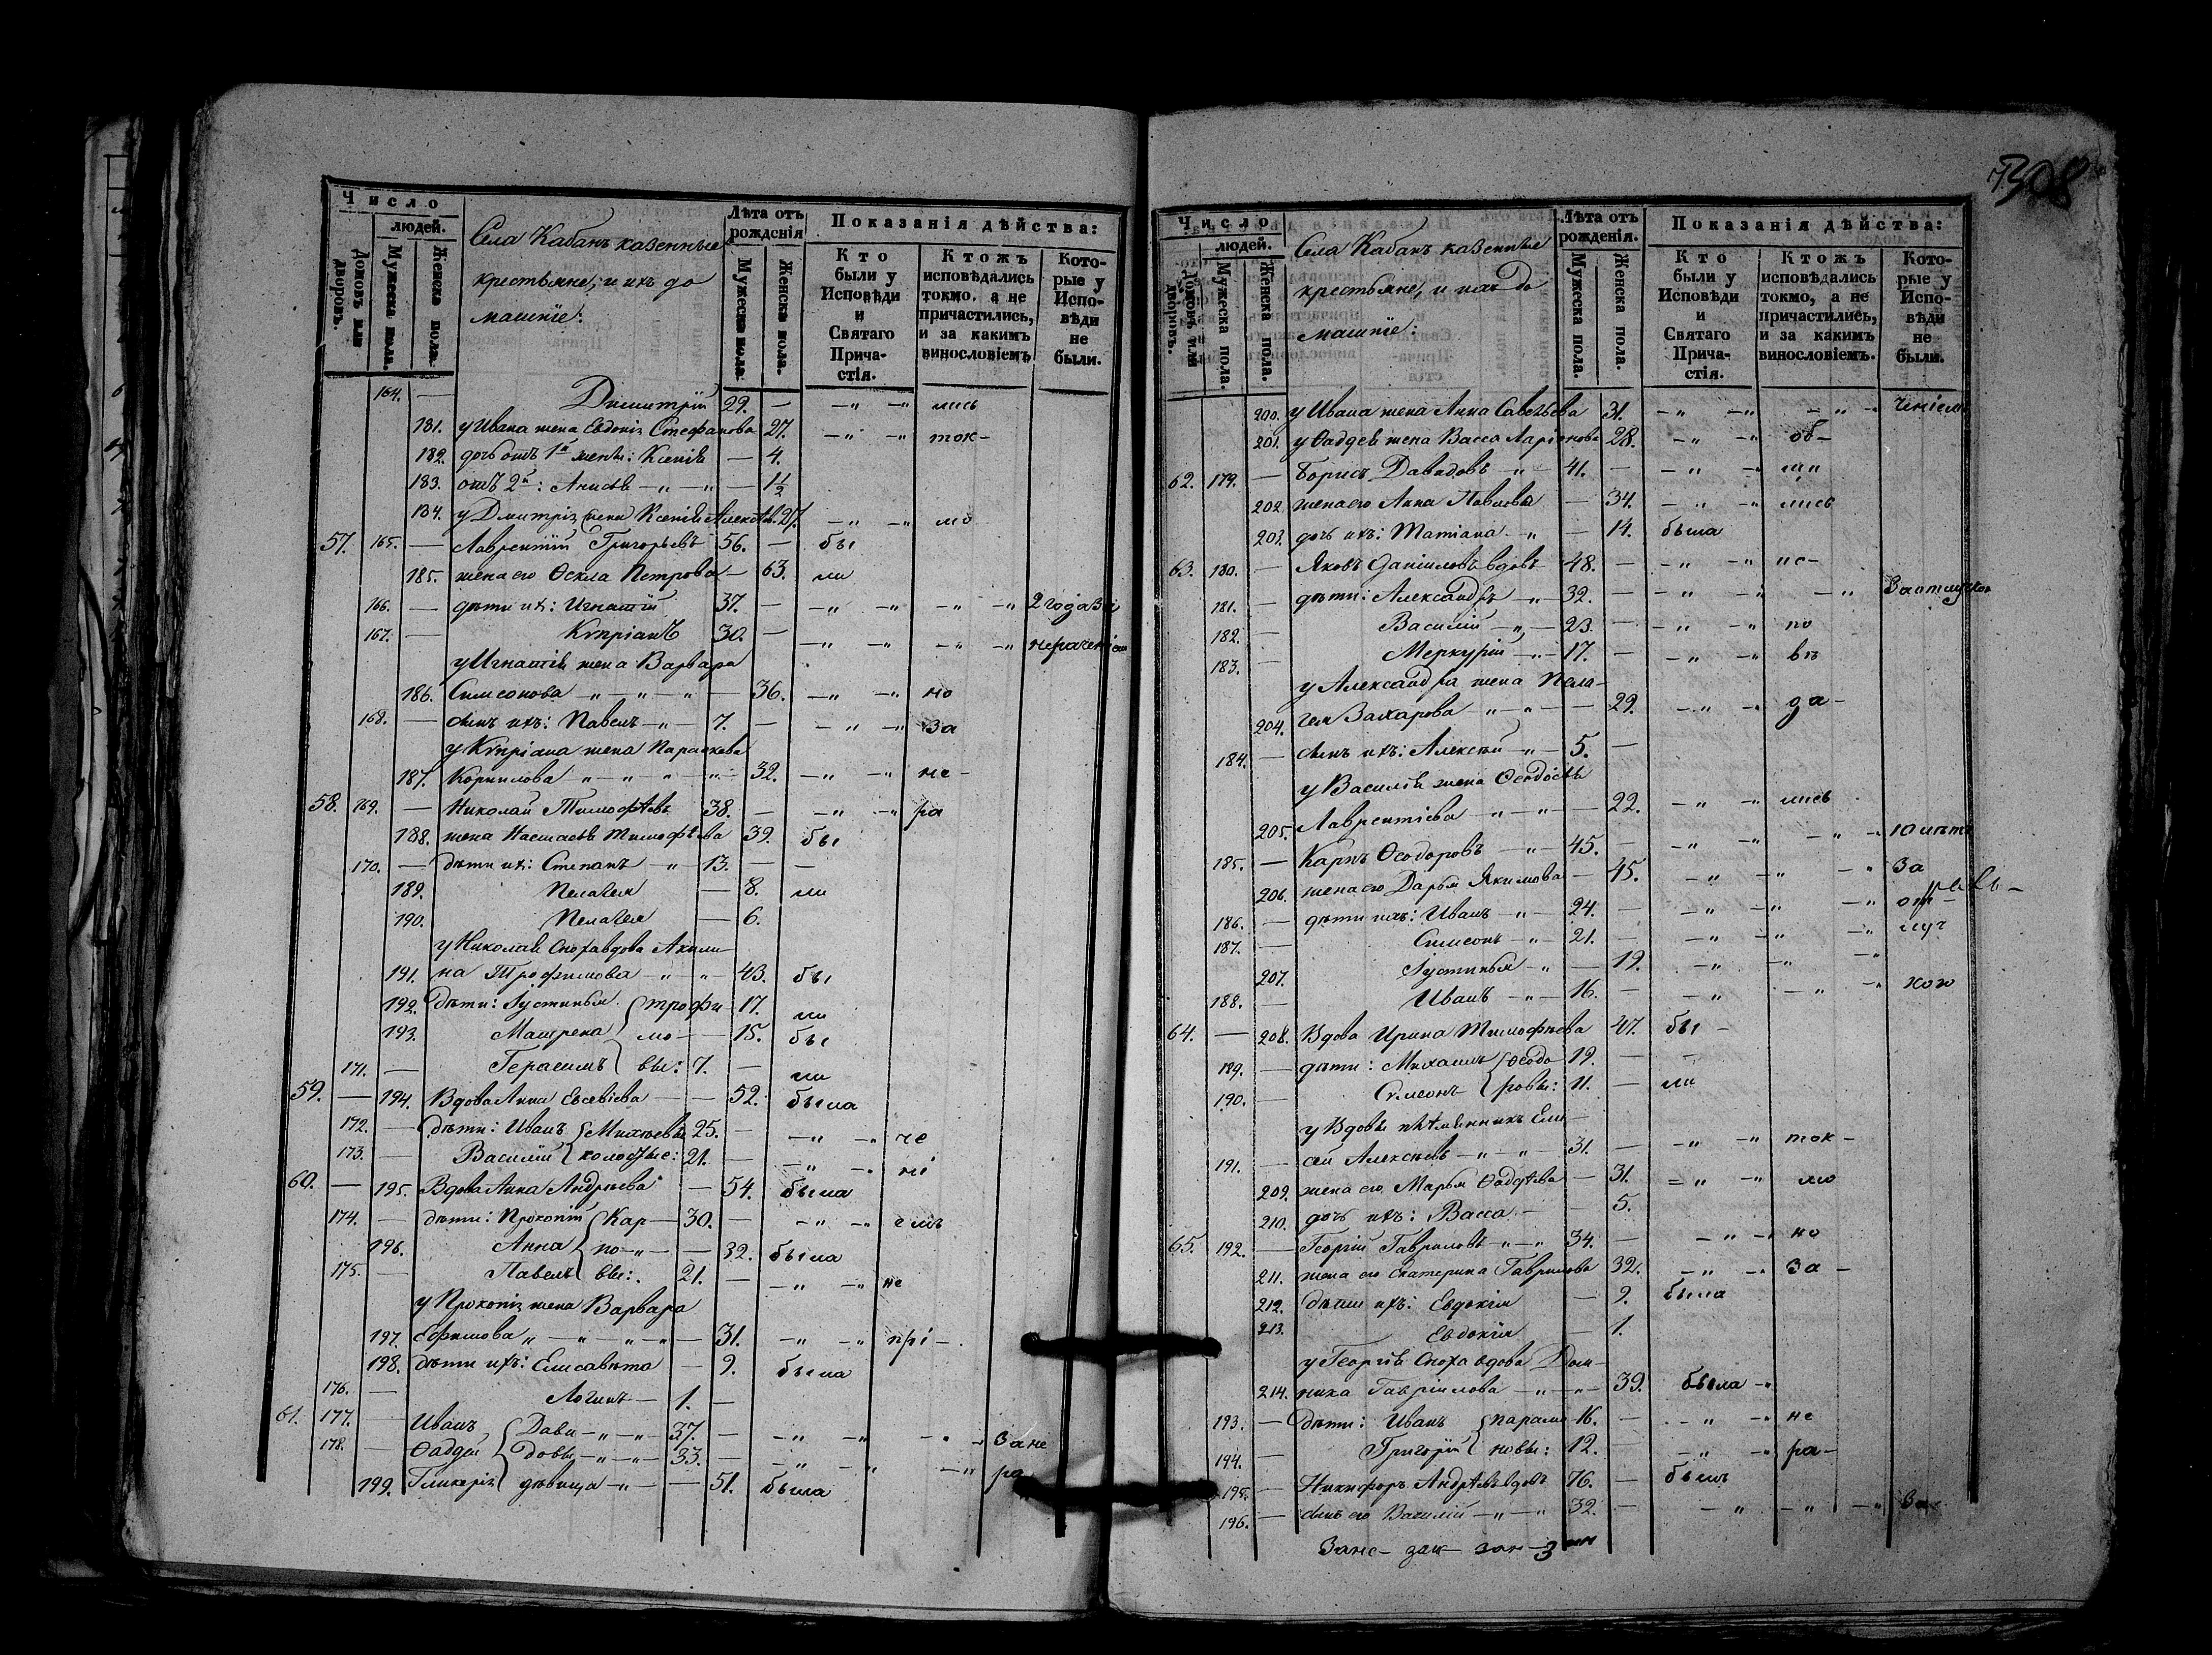 Число
людей.
Домовъ или дворовъ.
Мужеска пола.
Женска пола.
Села Кабанъ казенные
крестьяне, и ихъ до
машніе:
Лѣта отъ рожденія
Мужеска пола.
Женска пола.
Показанія дѣйства:
Кто были у Исповѣди и Святаго Причастія.
Ктожъ исповѣдались токмо, а не причастились, и за какимъ винословіемъ
Которые у Исповѣди не были.
164. — Димитрій 29. — -„- -„ лись
181. у Ивана жена Евдокія Стефанова 27. -„- -„ ток-
182. дочь отъ 1й жены: Ксенія — 4.
183. отъ 2й: Анисья -„-„- — 1½
184. у Дмитрія жена Ксенія Алексѣев. 27. -„- -„ мо
57. 165. — Лаврентій Григорьевъ 56. — бы
185. жена его Ѳекла Петрова — 63. ли
166. — дѣти ихъ: Игнатій 37. — -„- -„ -„- -„ 2 года за
167. — Кѵпріанъ 30. — -„- -„ -„- -„ нераченіем
у Игнатія жена Варвара
186. Симеонова -„-„-„ — 36. -„- -„ но
168. — сынъ ихъ: Павелъ -„- 7. — -„- -„ за
у Кѵпріана жена Параскева
187. Корнилова „-„ „ -„- 32. -„- -„ не-
58. 169. — Николай Тимофѣевъ 38. — -„- -„ ра
188. жена Настасья Тимофѣева 39. бы
170. — дѣти ихъ: Степанъ -„- 13. — —
189. Пелагея — 8. ли
190. Пелагея — 6.
у Николая сноха вдова Акили-
191. на Трофимова -„-„- 43. бы
192. дѣти: Іустинья { трофи- 17. ли
193. Матрена { мо- — 15. бы
171. — Герасимъ { вы: 7. — ли
59. — 194. Вдова Анна Евсевіева — 52. была
172. — дѣти: Иванъ { Михѣевы 25. — -„- -„ че
173. — Василій { холостые: 21. — -„- -„ ні
60. — 195. Вдова Анна Андрѣева — 54. была
174. — дѣти: Прокопій { Кар- 30. — -„- -„ емъ
196. Анна { по-„- — 32. была
175. — Павелъ { вы: 21. — -„- -„ не
у Прокопія жена Варвара
197. Ефимова „-„-„-„- 31. -„- -„ прі-
198. дѣти ихъ: Елисавета — 9. была
176. — Логинъ — 1. —
61. 177. — Иванъ { Дави-„-„- 37. — -„- -„ -„- За не
178. — Ѳаддей { довы-„-„- 33. — -„- -„ -„ ра
199. Гликерія { дѣвица -„- — 51. была
308
Число
людей.
Домовъ или дворовъ.
Мужеска пола.
Женска пола.
Села Кабанъ казенные
крестьяне, и ихъ до
машніе:
Лѣта отъ рожденія.
Мужеска пола.
Женска пола.
Показанія дѣйства:
Кто были у Исповѣди и Святаго Причастія.
Ктожъ исповѣдались токмо, а не причастились, и за какимъ винословіемъ.
Которые у Исповѣди не были.
200. у Ивана жена Анна Савельева 31. -„- -„ -„- ченіемъ
201. у Ѳаддея жена Васса Ларіонова 28. -„- -„ об-
62. 179. — Борисъ Давыдовъ -„- 41. — -„- -„ ща
202. жена его Анна Павлова — 34. -„- -„ лись
203. дочь ихъ: Татіана -„ — 14. была
63. 180. — Яковъ Даніиловъ вдовъ 48. — -„- -„ ис-
181. — дѣти: Александръ -„ 32. — -„- -„ -„ За отлучкою
182. — Василій -„- 23. — -„- -„ по
183. — Меркурій -„- 17. — -„- -„ вѣ
у Александра жена Пела-
204. гея Захарова -„-„- — 29. -„- -„ да-
184. — сынъ ихъ: Алексѣй -„- 5. —
у Василія жена Ѳеодосья
205. Лаврентіева -„-„- — 22. -„- -„ лись
185. — Карпъ Ѳеодоровъ -„- 45. — -„- -„ -„- 10 лѣтъ
206. жена его Дарья Якимова — 45. -„- -„ -„ За
186. — дѣти ихъ: Иванъ -„- 24. — -„- -„ -„ от-
187. — Симеонъ -„- 21. — -„- -„ -„ луч
207. Іустинья -„- — 19. -„ -„ -„
188. — Иванъ -„- 16. — -„ -„- кою
64. — 208. Вдова Ирина Тимофѣева 47. бы-
189. — дѣти: Михаилъ { Ѳеодо 19. — —
190. — Сѵмеонъ { ровы: 11. — ли
у Вдовы племянникъ Ели-
191. — сей Алексѣевъ -„-„- 31. — -„- -„ ток-
209. жена его Марья Ѳаддѣева — 31. -„- -„ мо
210. дочь ихъ: Васса — 5.
65. 192. — Георгій Гавриловъ „-„ 34. — -„- -„ но
211. жена его Екатерина Гаврилова 32. -„- -„ за-
212. дѣти ихъ: Евдокія — 9. была
213. Евдокія — 1.
у Георгія сноха вдова Дом-
214. ника Гавріилова -„-„- 39. была -„
193. — дѣти: Иванъ { Парамо 16. — -„- -„ не
194. — Григорій { новы: 12. — -„- -„ ра-
195. — Никифоръ Андрѣевъ вдовъ 76. — былъ
196. — сынъ его Василій -„-„ 32. — -„ -„ -„ За